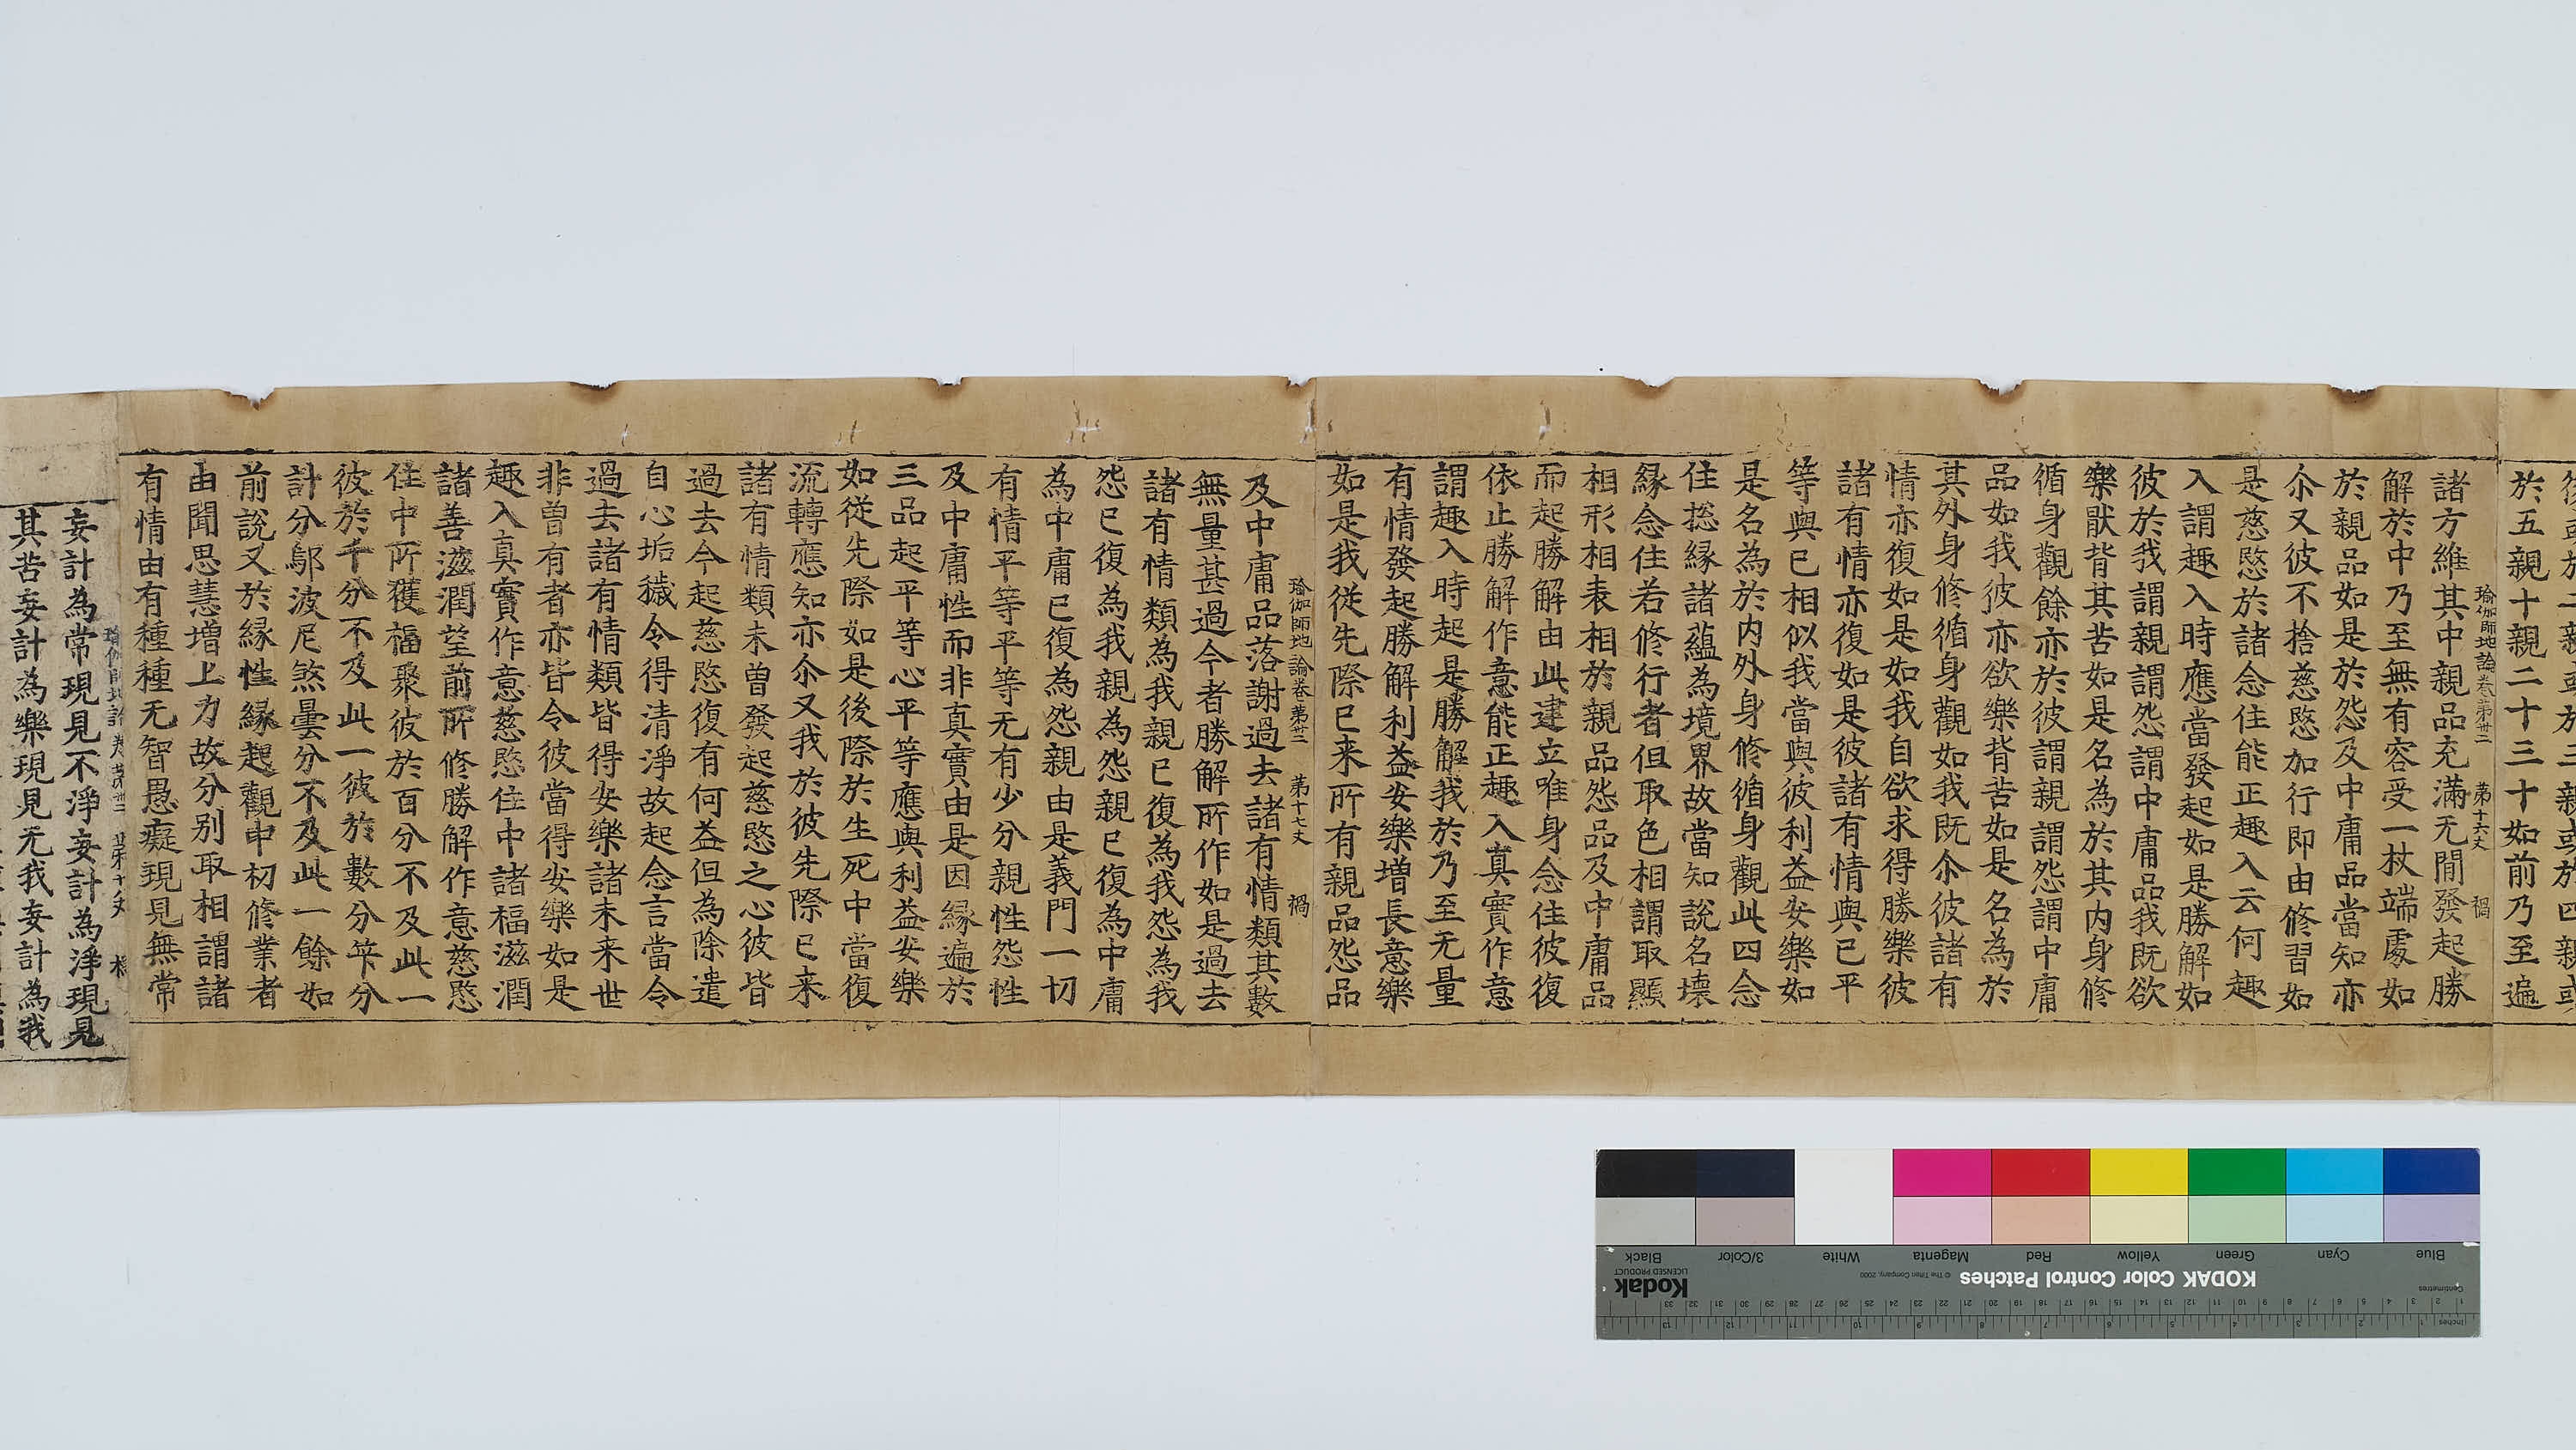 於五親十親二十三十如前乃至遍
瑜伽師地論卷第卅二 第十六丈 禍
諸方維其中親品充滿无間發起勝
解於中乃至無有容受一杖端處如
於親品如是於怨及中庸品當知亦
尒又彼不捨慈愍加行即由修習如
是慈愍於諸念住能正趣入云何趣
入謂趣入時應當發起如是勝解如
彼於我謂親謂怨謂中庸品我既欲
樂猒背其苦如是名為於其内身修
循身觀餘亦於彼謂親謂怨謂中庸
品如我彼亦欲樂背苦如是名為於
其外身修循身觀如我既尒彼諸有
情亦復如是如我自欲求得勝樂彼
諸有情亦復如是彼諸有情與已平
等與已相似我當與彼利益安樂如
是名為於内外身修循身觀此四念
住揔縁諸蘊為境界故當知說名壞
縁念住若修行者但取色相謂取顯
相形相表相於親品怨品及中庸品
而起勝解由此建立唯身念住彼復
依止勝解作意能正趣入真實作意
謂趣入時起是勝解我於乃至无量
有情發起勝解利益安樂増長意樂
如是我從先際已来所有親品怨品
瑜伽師地論卷第卅二 第十七丈 禍
及中庸品落謝過去諸有情類其數
無量甚過今者勝解所作如是過去
諸有情類為我親已復為我怨為我
怨已復為我親為怨親已復為中庸
為中庸已復為怨親由是義門一切
有情平等平等无有少分親性怨性
及中庸性而非真實由是因縁遍於
三品起平等心平等應與利益安樂
如從先際如是後際於生死中當復
流轉應知亦尒又我於彼先際已来
諸有情類未曾發起慈愍之心彼皆
過去今起慈愍復有何益但為除遣
自心垢穢令得清淨故起念言當令
過去諸有情類皆得安樂諸未来世
非曽有者亦皆令彼當得安樂如是
趣入真實作意慈愍住中諸福滋潤
諸善滋潤望前所修勝解作意慈愍
住中所獲福聚彼於百分不及此一
彼於千分不及此一彼於數分筭分
計分鄔波尼煞曇分不及此一餘如
前說又於縁性縁起觀中初修業者
由聞思慧増上力故分別取相謂諸
有情由有種種无智愚癡現見無常
瑜伽師地論卷第卅二
妄計為常現見不淨妄計為淨現見
其苦妄計為樂現見无我妄計為我
KODAK Color Control Patches
Kodak
LICENSED PRODUCT
© The Tiffen Company, 2000
Blue Cyan Green Yellow Red Magenta White 3/Color Black
Centimetres
1 2 3 4 5 6 7 8 9 10 11 12 13 14 15 16 17 18 19 20 21 22 23 24 25 26 27 28 29 30 31 32 33
Inches 1 2 3 4 5 6 7 8 9 10 11 12 13